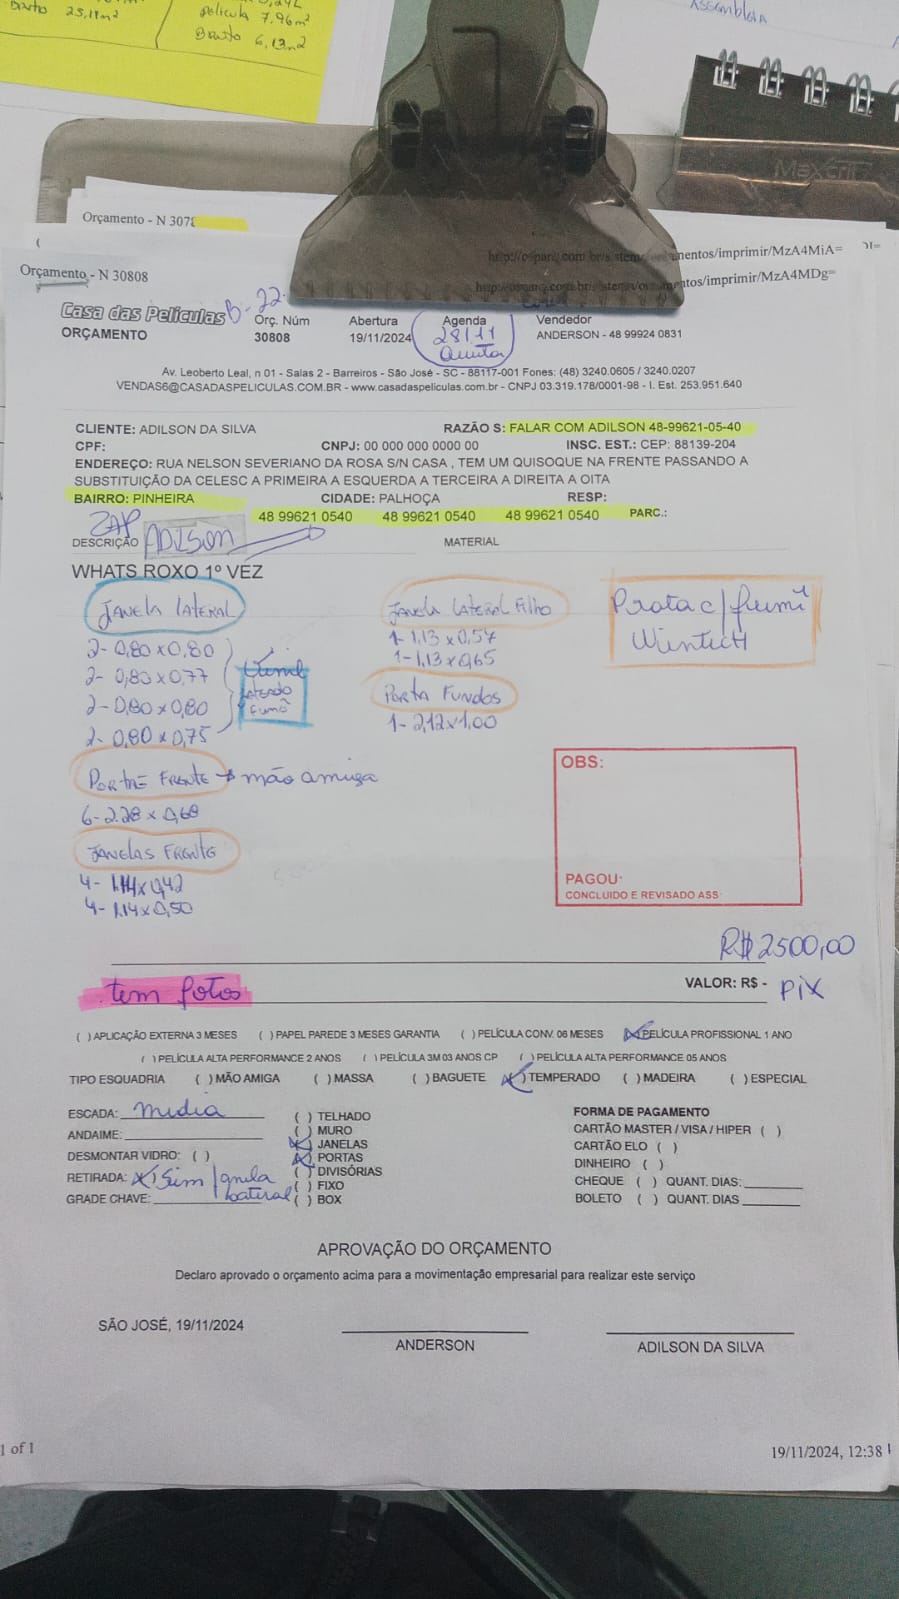 Bruto 25,11m²
película 7.96m²
Bruto 6,13m²
Assembleia
Maxcril
Orçamento - N 3078
Orçamento - N 30808
entos/imprimir/MzA4MiA=
mentos/imprimir/MzA4MDg=
Casa das Películas B-22
ORÇAMENTO
Orç. Núm
30808
Abertura
19/11/2024
Agenda
28/11
Quinta
Vendedor
ANDERSON - 48 99924 0831
Av. Leoberto Leal, n 01 - Salas 2 - Barreiros - São José - SC - 88117-001 Fones: (48) 3240.0605 / 3240.0207
VENDAS6@CASADASPELICULAS.COM.BR - www.casadaspeliculas.com.br - CNPJ 03.319.178/0001-98 - I. Est. 253.951.640
CLIENTE: ADILSON DA SILVA RAZÃO S: FALAR COM ADILSON 48-99621-05-40
CPF: CNPJ: 00 000 000 0000 00 INSC. EST.: CEP: 88139-204
ENDEREÇO: RUA NELSON SEVERIANO DA ROSA S/N CASA , TEM UM QUISOQUE NA FRENTE PASSANDO A
SUBSTITUIÇÃO DA CELESC A PRIMEIRA A ESQUERDA A TERCEIRA A DIREITA A OITA
BAIRRO: PINHEIRA CIDADE: PALHOÇA RESP:
48 99621 0540 48 99621 0540 48 99621 0540 PARC.:
ZAP
DESCRIÇÃO ADISON MATERIAL
WHATS ROXO 1º VEZ
JANELA LATERAL
2- 0,80 x 0,80
2- 0,80 x 0,77
2- 0,80 x 0,80
2- 0,80 x 0,75
fumê
PORTAS FRENTE → mão amiga
6- 2.28 x 0,68
JANELAS FRENTE
4- 1.14 x 0,42
4- 1.14 x 0,50
JANELA LATERAL Filho
1- 1,13 x 0,57
1- 1,13 x 0,65
PORTA FUNDOS
1- 2,12 x 1,00
Prata c/ fumê
Wintech
OBS:
PAGOU:
CONCLUIDO E REVISADO ASS:
R$ 2500,00
tem fotos
VALOR: R$ - PIX
( ) APLICAÇÃO EXTERNA 3 MESES ( ) PAPEL PAREDE 3 MESES GARANTIA ( ) PELÍCULA CONV. 06 MESES (X) PELÍCULA PROFISSIONAL 1 ANO
( ) PELÍCULA ALTA PERFORMANCE 2 ANOS ( ) PELÍCULA 3M 03 ANOS CP ( ) PELÍCULA ALTA PERFORMANCE 05 ANOS
TIPO ESQUADRIA ( ) MÃO AMIGA ( ) MASSA ( ) BAGUETE (X) TEMPERADO ( ) MADEIRA ( ) ESPECIAL
ESCADA: media
ANDAIME:
DESMONTAR VIDRO: ( )
RETIRADA: (X) Sim janela
GRADE CHAVE: lateral
( ) TELHADO
( ) MURO
(X) JANELAS
(X) PORTAS
( ) DIVISÓRIAS
( ) FIXO
( ) BOX
FORMA DE PAGAMENTO
CARTÃO MASTER / VISA / HIPER ( )
CARTÃO ELO ( )
DINHEIRO ( )
CHEQUE ( ) QUANT. DIAS:
BOLETO ( ) QUANT. DIAS
APROVAÇÃO DO ORÇAMENTO
Declaro aprovado o orçamento acima para a movimentação empresarial para realizar este serviço
SÃO JOSÉ, 19/11/2024
ANDERSON
ADILSON DA SILVA
1 of 1
19/11/2024, 12:38